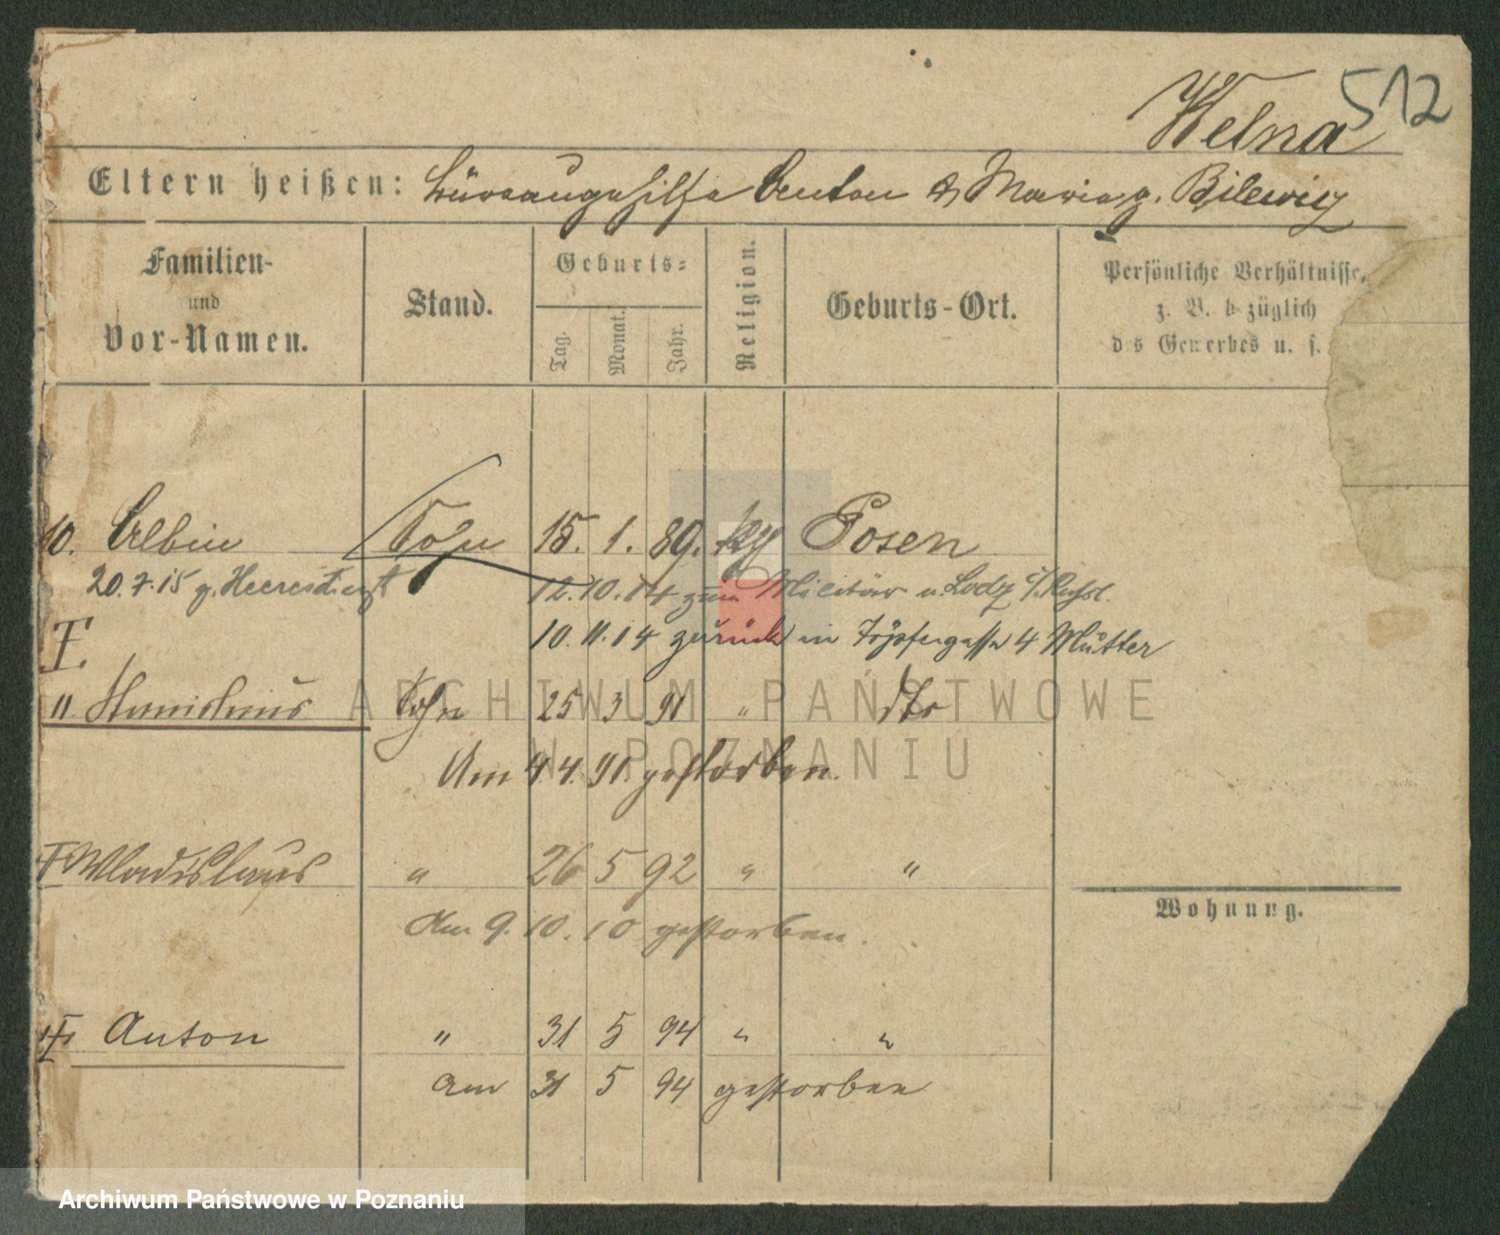 512
Welna
Eltern heißen: Büreaugehilfe Anton & Maria g. Bilewicz
Familien-
und
Vor-Namen.
Stand.
Geburts-
Tag.
Monat.
Jahr.
Religion.
Geburts-Ort.
Persönliche Verhältnisse,
z. B. bezüglich
des Gewerbes u. s.
10. Albin Sohn 15. 1. 89. Posen
20.7.15 z. Heeresdienst 12.10.14 zum Militär u. Lodz
10.11.14 zurück in Töpfergasse 4 Mutter
" Stanislaus Sohn 25 3 91 " dto
Am 4.4.91. gestorben.
Wladislaus " 26 5 92 " "
Am 9. 10. 10 gestorben.
Anton " 31 5 94 " "
am 31 5 94 gestorben
Wohnung.
ARCHIWUM PAŃSTWOWE
W POZNANIU
Archiwum Państwowe w Poznaniu